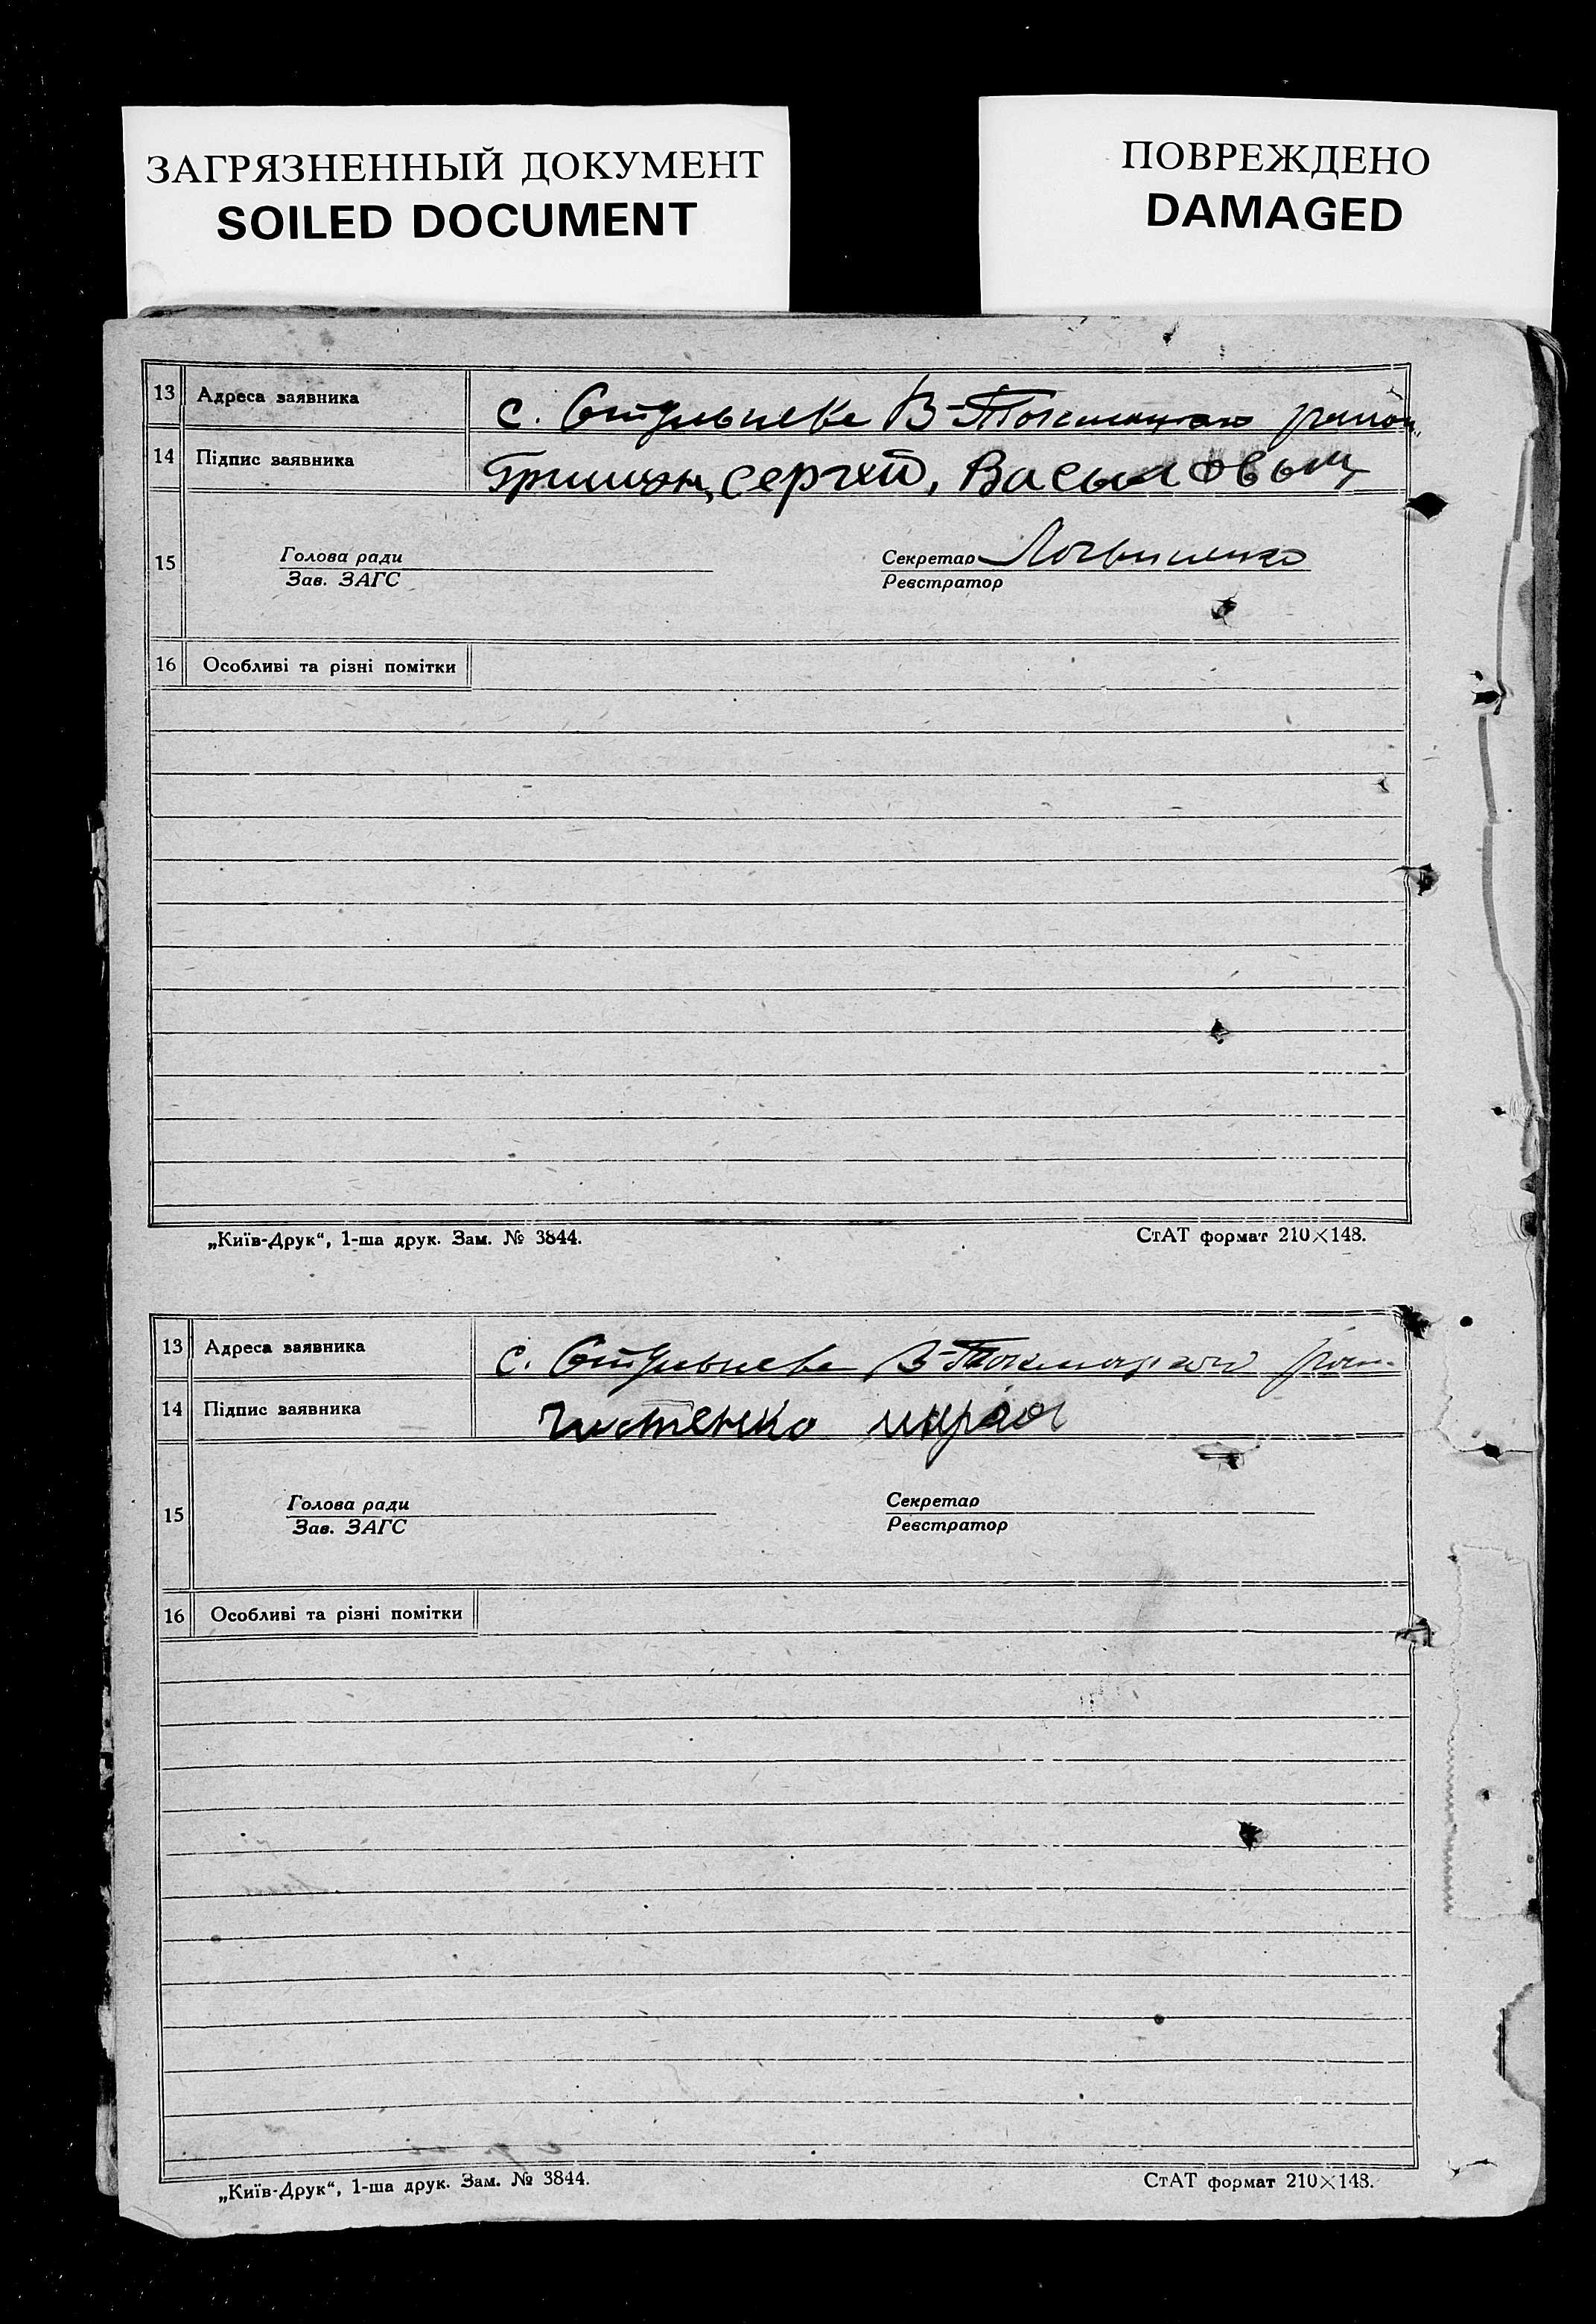 ЗАГРЯЗНЕННЫЙ ДОКУМЕНТ
SOILED DOCUMENT
ПОВРЕЖДЕНО
DAMAGED
13 Адреса заявника с. В-Токмацького
14 Підпис заявника Сергей, Васыловыч
15 Голова ради Секретар Логвиненко
Зав. ЗАГС Реєстратор
16 Особливі та різні помітки
„Київ-Друк“, 1-ша друк. Зам. № 3844. СтАТ формат 210×148.
13 Адреса заявника с. В-Токмацького
14 Підпис заявника Чистенко
15 Голова ради Секретар
Зав. ЗАГС Реєстратор
16 Особливі та різні помітки
„Київ-Друк“, 1-ша друк. Зам. № 3844. СтАТ формат 210×148.